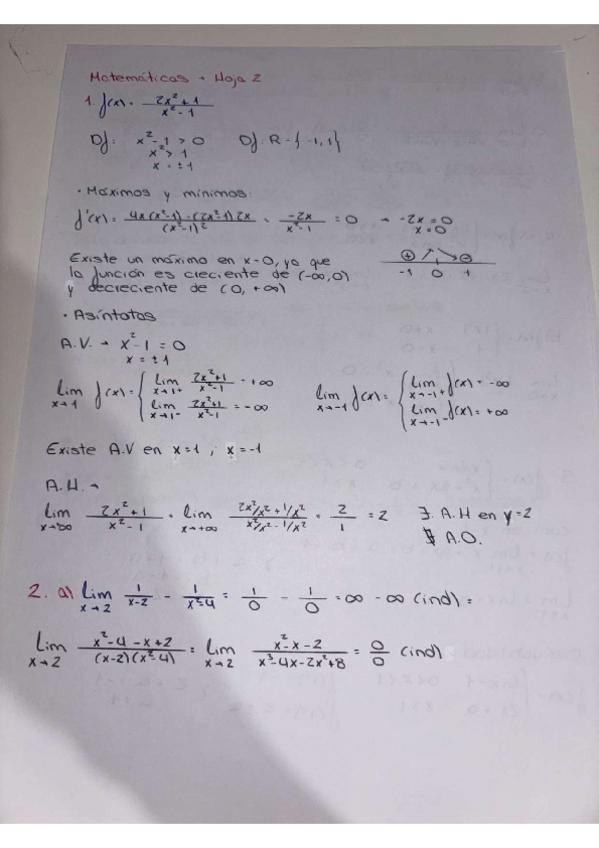 Matemáticas → Hoja 2
1. f(x) = 2x²+1 / x²-1
Df: x²-1 > 0 Df: R - {-1,1}
x² > 1
x = ±1
· Máximos y mínimos:
f'(x) = 4x(x²-1) - (2x²-1)2x / (x²-1)² = -2x / x²-1 = 0 → -2x = 0
x = 0
Existe un máximo en x=0, ya que
la función es creciente de (-∞,0)
y decreciente de (0,+∞)
+ -
-1 0 1
· Asíntotas
A.V. → x²-1 = 0
x = ±1
lim x→1 f(x) = { lim x→1+ 2x²+1 / x²-1 = +∞ lim x→-1 f(x) = { lim x→-1+ f(x) = -∞
lim x→1- 2x²+1 / x²-1 = -∞ lim x→-1- f(x) = +∞
Existe A.V en x=1 ; x=-1
A.H. →
lim x→∞ 2x²+1 / x²-1 = lim x→+∞ 2x²/x² + 1/x² / x²/x² - 1/x² = 2/1 = 2 ∃. A.H en y=2
∄ A.O.
2. a) lim x→2 1/x-2 - 1/x²-4 = 1/0 - 1/0 = ∞ - ∞ (ind) =
lim x→2 x²-4-x+2 / (x-2)(x²-4) = lim x→2 x²-x-2 / x³-4x-2x²+8 = 0/0 (ind)